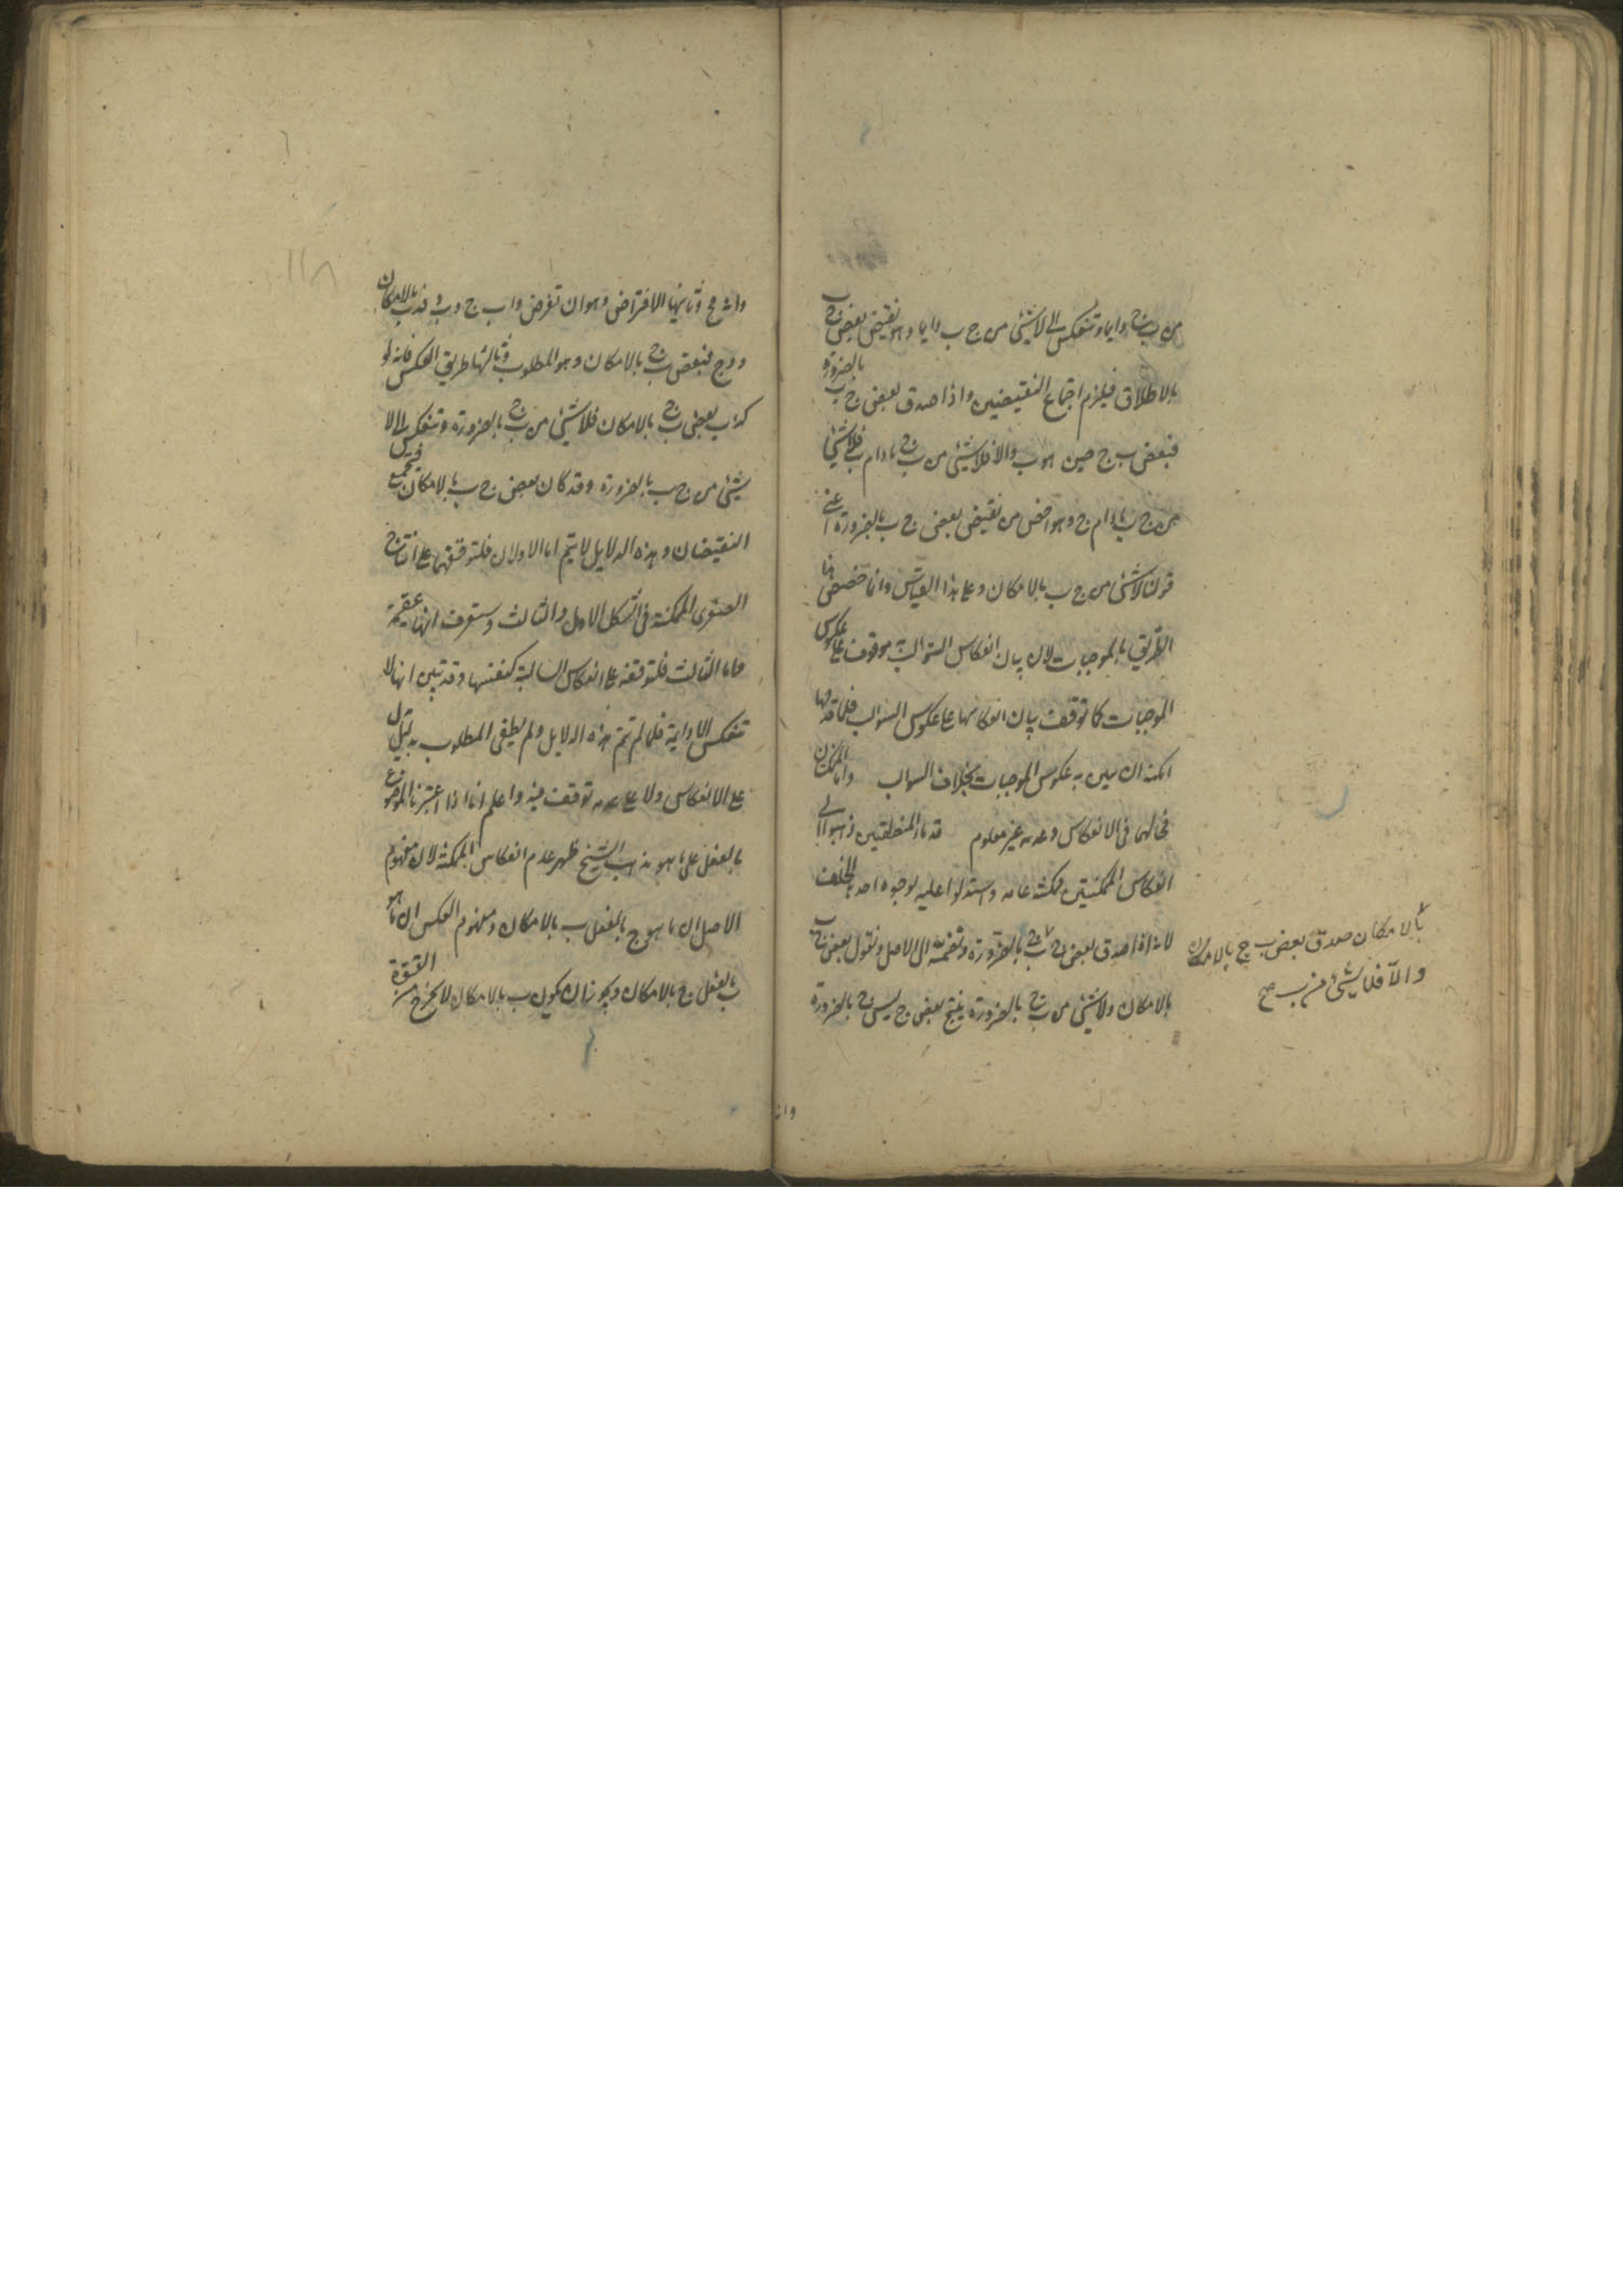 من ب ج دايما وتنعكس الى لا شئ من ج ب دايما وهو نقيض بعض ج ب
بالاطلاق فيلزم اجتماع النقيضين واذا صدق بعض ج ب بالضرورة
فبعض ب ج حين هو ب والا فلا شئ من ب ج مادام ب فلا شئ
من ج ب مادام ج وهو اخص من نقيض بعض ج ب بالضرورة اعنى
قولنا لا شئ من ج ب بالامكان وعلى هذا القياس وانما خصصنا هذا
الطريق بالموجبات لان بيان انعكاس السوالب به موقوف على عكوس
الموجبات كما توقف بيان انعكاسها على عكوس السوالب فلما قدمها
امكنه ان يبين به عكوس الموجبات بخلاف السوالب واما الممكنتان
فحالهما فى الانعكاس وعدمه غير معلوم قدماء المنطقيين ذهبوا الى
انعكاس الممكنتين ممكنة عامه واستدلوا عليه بوجوه احدها الخلف
لانه اذا صدق بعض ج ب بالضرورة وتضمه الى الاصل ونقول بعض ج ب
بالامكان ولا شئ من ب ج بالضرورة ينتج بعض ج ليس ج بالضرورة
بالامكان صدق بعض ب ج بالامكان
والا فلا شئ من ب ج صح
وانه
وانه مح وثانيها الافتراض وهو ان تفرض ذات ب ج و د فد ب بالامكان
و د ج فبعض ب ج بالامكان وهو المطلوب وثالثها طريق العكس فانه لو
كذب بعض ب ج بالامكان فلا شئ من ب ج بالضرورة وتنعكس الى لا
شئ من ج ب بالضرورة وقد كان بعض ج ب بالامكان فيجتمع
النقيضان وهذه الدلايل لا يتم اما الاولان فلتوقفهما على انتاج
الصغرى الممكنة فى الشكل الاول والثالث وستعرف انها عقيمة
واما الثالث فلتوقفه على انعكاس السالبة كنفسها وقد تبين انها لا
تنعكس الا دايمة فلما لم تتم هذه الدلايل ولم يظفر المطلوب بدليل
على الانعكاس ولا على عدمه توقف فيه واعلم انا اذا اعتبرنا الموضوع
بالفعل على ما هو مذهب الشيخ ظهر عدم انعكاس الممكنة لان مفهوم
الاصل ان ما هو ج بالفعل ب بالامكان ومفهوم العكس ان ما هو
ب بالفعل ج بالامكان ويجوز ان يكون ب بالامكان لا يخرج من القوة
١١٨